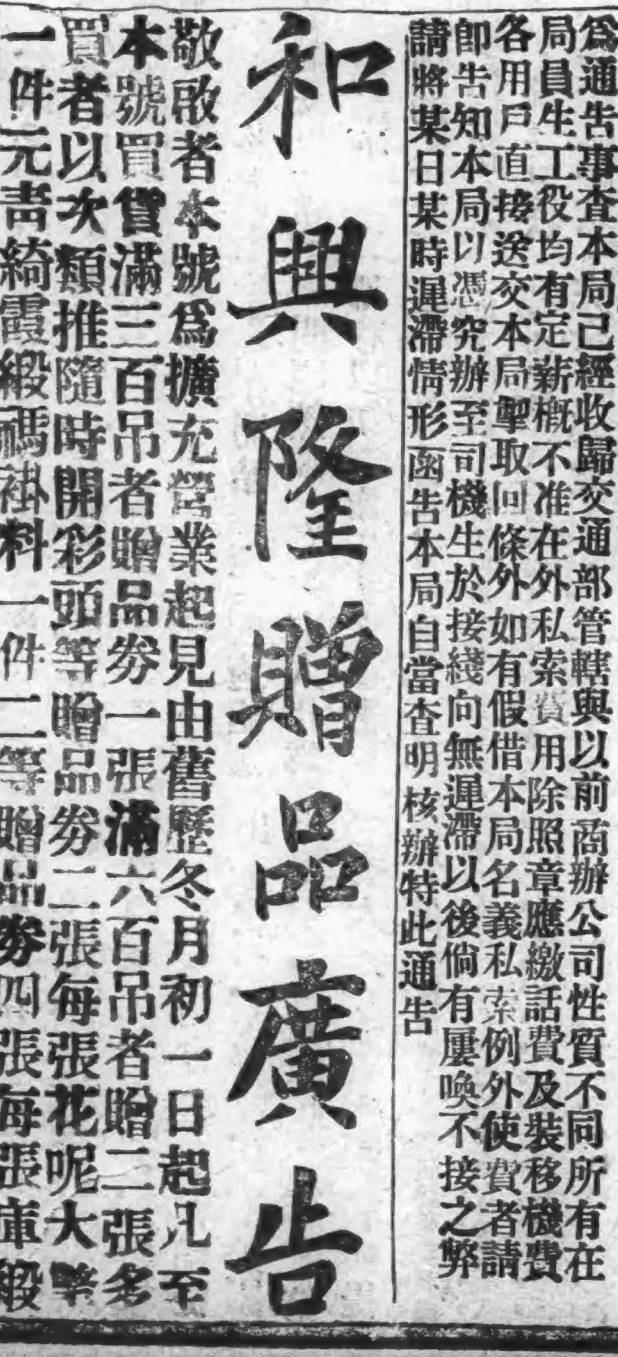 為通告事查本局已經收歸交通部管轄與以前商辦公司性質不同所有在
局員生工役均有定薪概不准在外私索費用除照章應繳話費及裝移機費
各用戶直接送交本局掣取回條外如有假借本局名義私索例外使費者請
卽告知本局以憑究辦至司機生於接綫向無遲滯以後倘有屢喚不接之弊
請將某日某時遲滯情形函告本局自當查明核辦特此通告
和興隆贈品廣告
敬啟者本號為擴充營業起見由舊歷冬月初一日起凡至
本號買貨滿三百吊者贈品劵一張滿六百吊者贈二張多
買者以次類推隨時開彩頭等贈品劵二張每張花呢大氅
一件元青綺霞緞禡褂料一件二等贈品劵四張每張庫緞